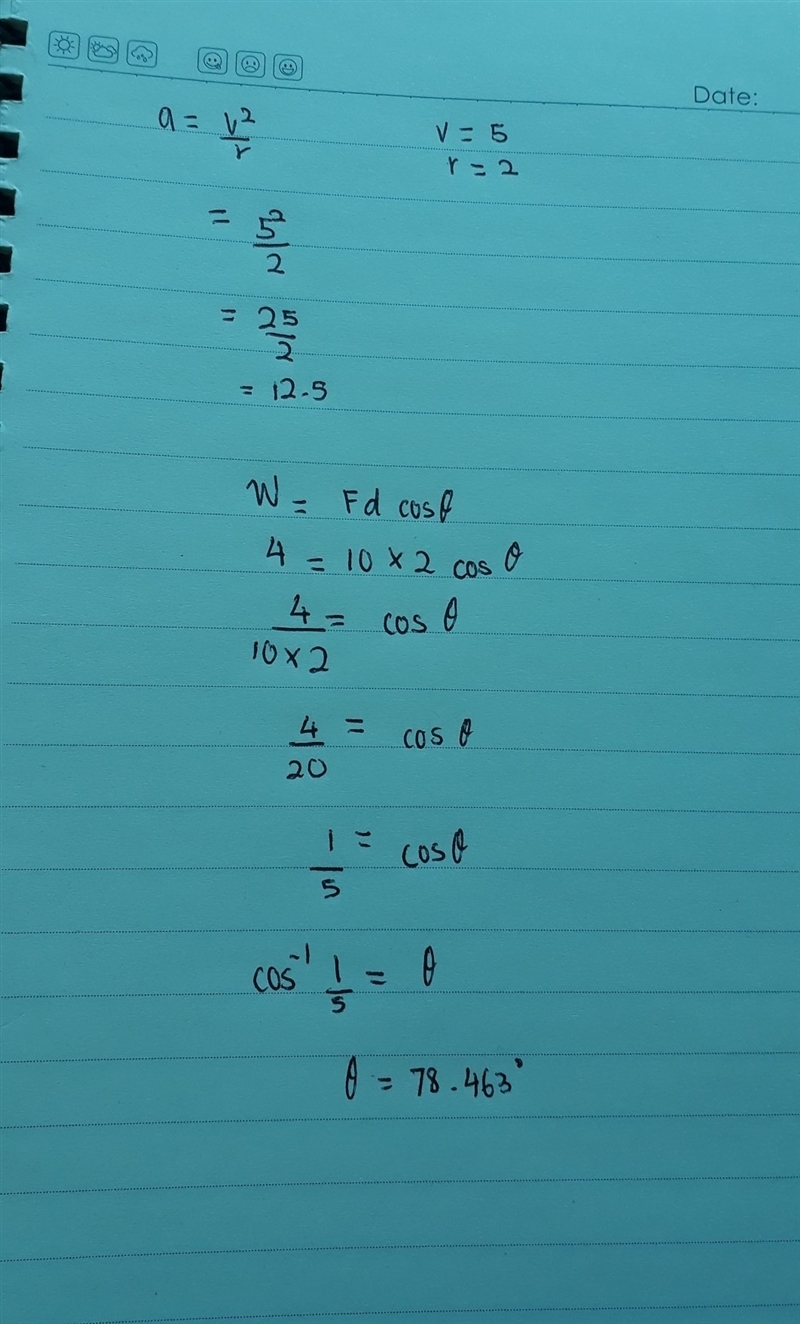 Date:
a = v²/r    v = 5
r = 2
= 5²/2
= 25/2
= 12.5
W = Fd cosθ
4 = 10 × 2 cos θ
4/(10 × 2) = cos θ
4/20 = cos θ
1/5 = cosθ
cos⁻¹ 1/5 = θ
θ = 78.463°